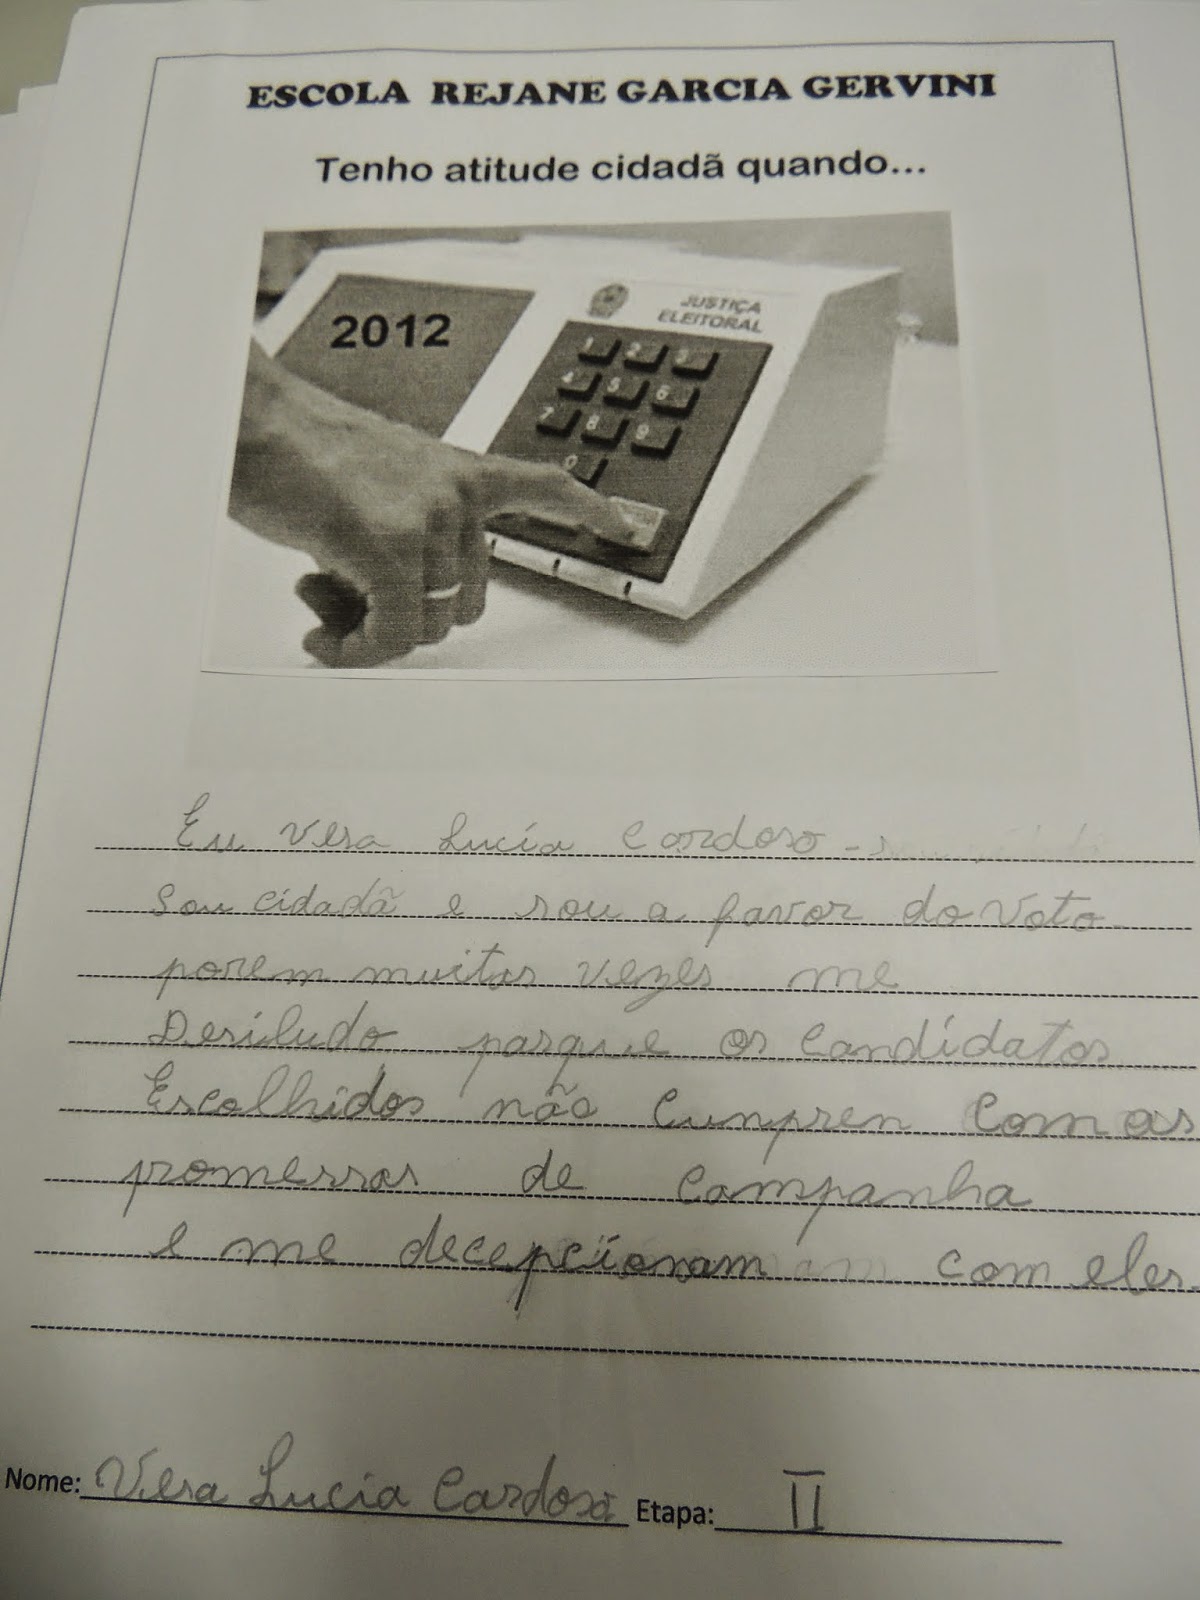 ESCOLA REJANE GARCIA GERVINI
Tenho atitude cidadã quando...
2012
JUSTIÇA
ELEITORAL
1 2 3
4 5 6
7 8 9
0
Eu Vera Lucía Cardoso -
Sou cidadã e sou a favor do Voto
porem muitas vezes me
Desiludo parque os Candídatos
Escolhidos não Cunpren Com as
promessas de Campanha
e me decepcíonam com eles
Nome: Vera Lucia Cardoso Etapa: II